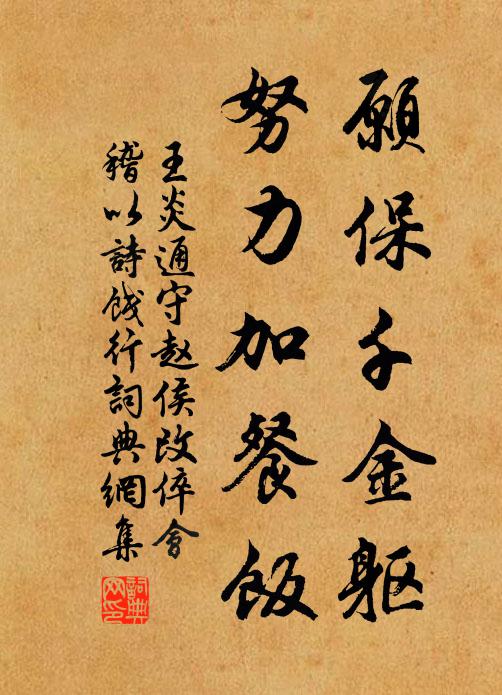 願保千金軀
努力加餐飯
王炎通守赵侯改倅會
稽以詩餞行詞典網集
詞典
网印